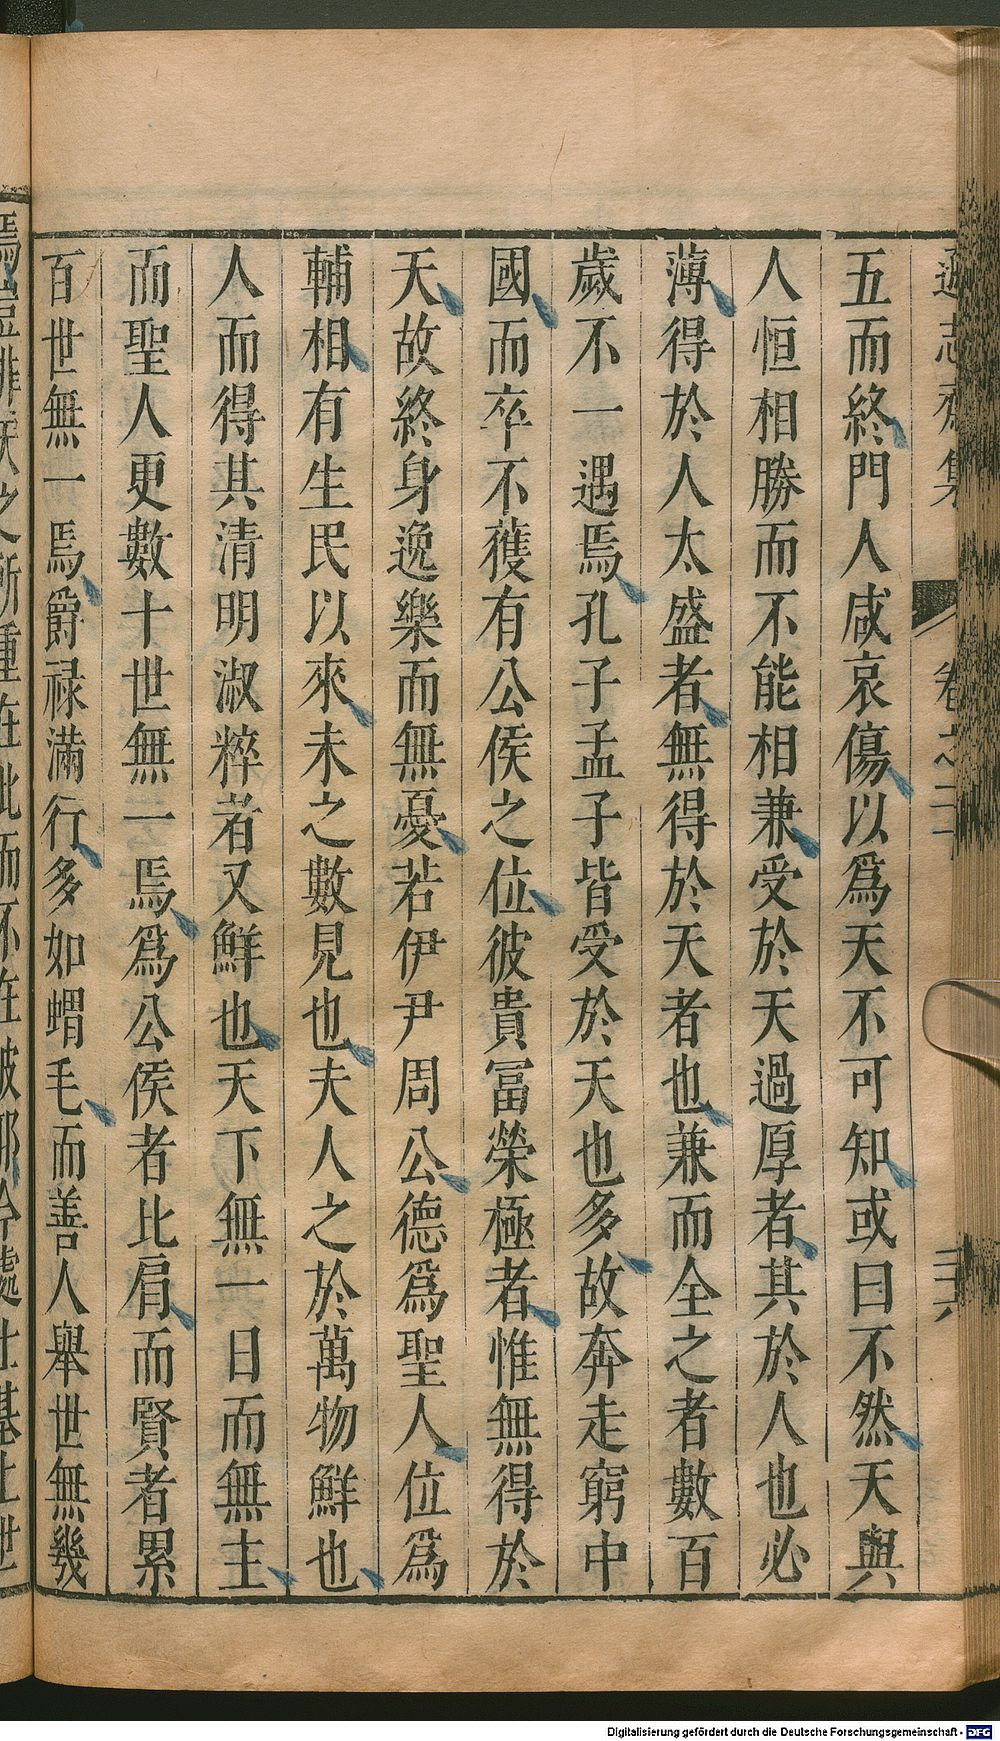 遜志齋集 卷之二十 二六
五而終門人咸哀傷以爲天不可知或曰不然天與
人恒相勝而不能相兼受於天過厚者其於人也必
薄得於人太盛者無得於天者也兼而全之者數百
歲不一遇焉孔子孟子皆受於天也多故奔走窮中
國而卒不獲有公侯之位彼貴富榮極者惟無得於
天故終身逸樂而無憂若伊尹周公德爲聖人位爲
輔相有生民以來未之數見也夫人之於萬物鮮也
人而得其清明淑粹者又鮮也天下無一日而無主
而聖人更數十世無一焉爲公侯者比肩而賢者累
百世無一焉爵祿滿行多如蝟毛而善人舉世無幾
焉豈非天之所重在此而不在彼耶今處士基士世
Digitalisierung gefördert durch die Deutsche Forschungsgemeinschaft - DFG